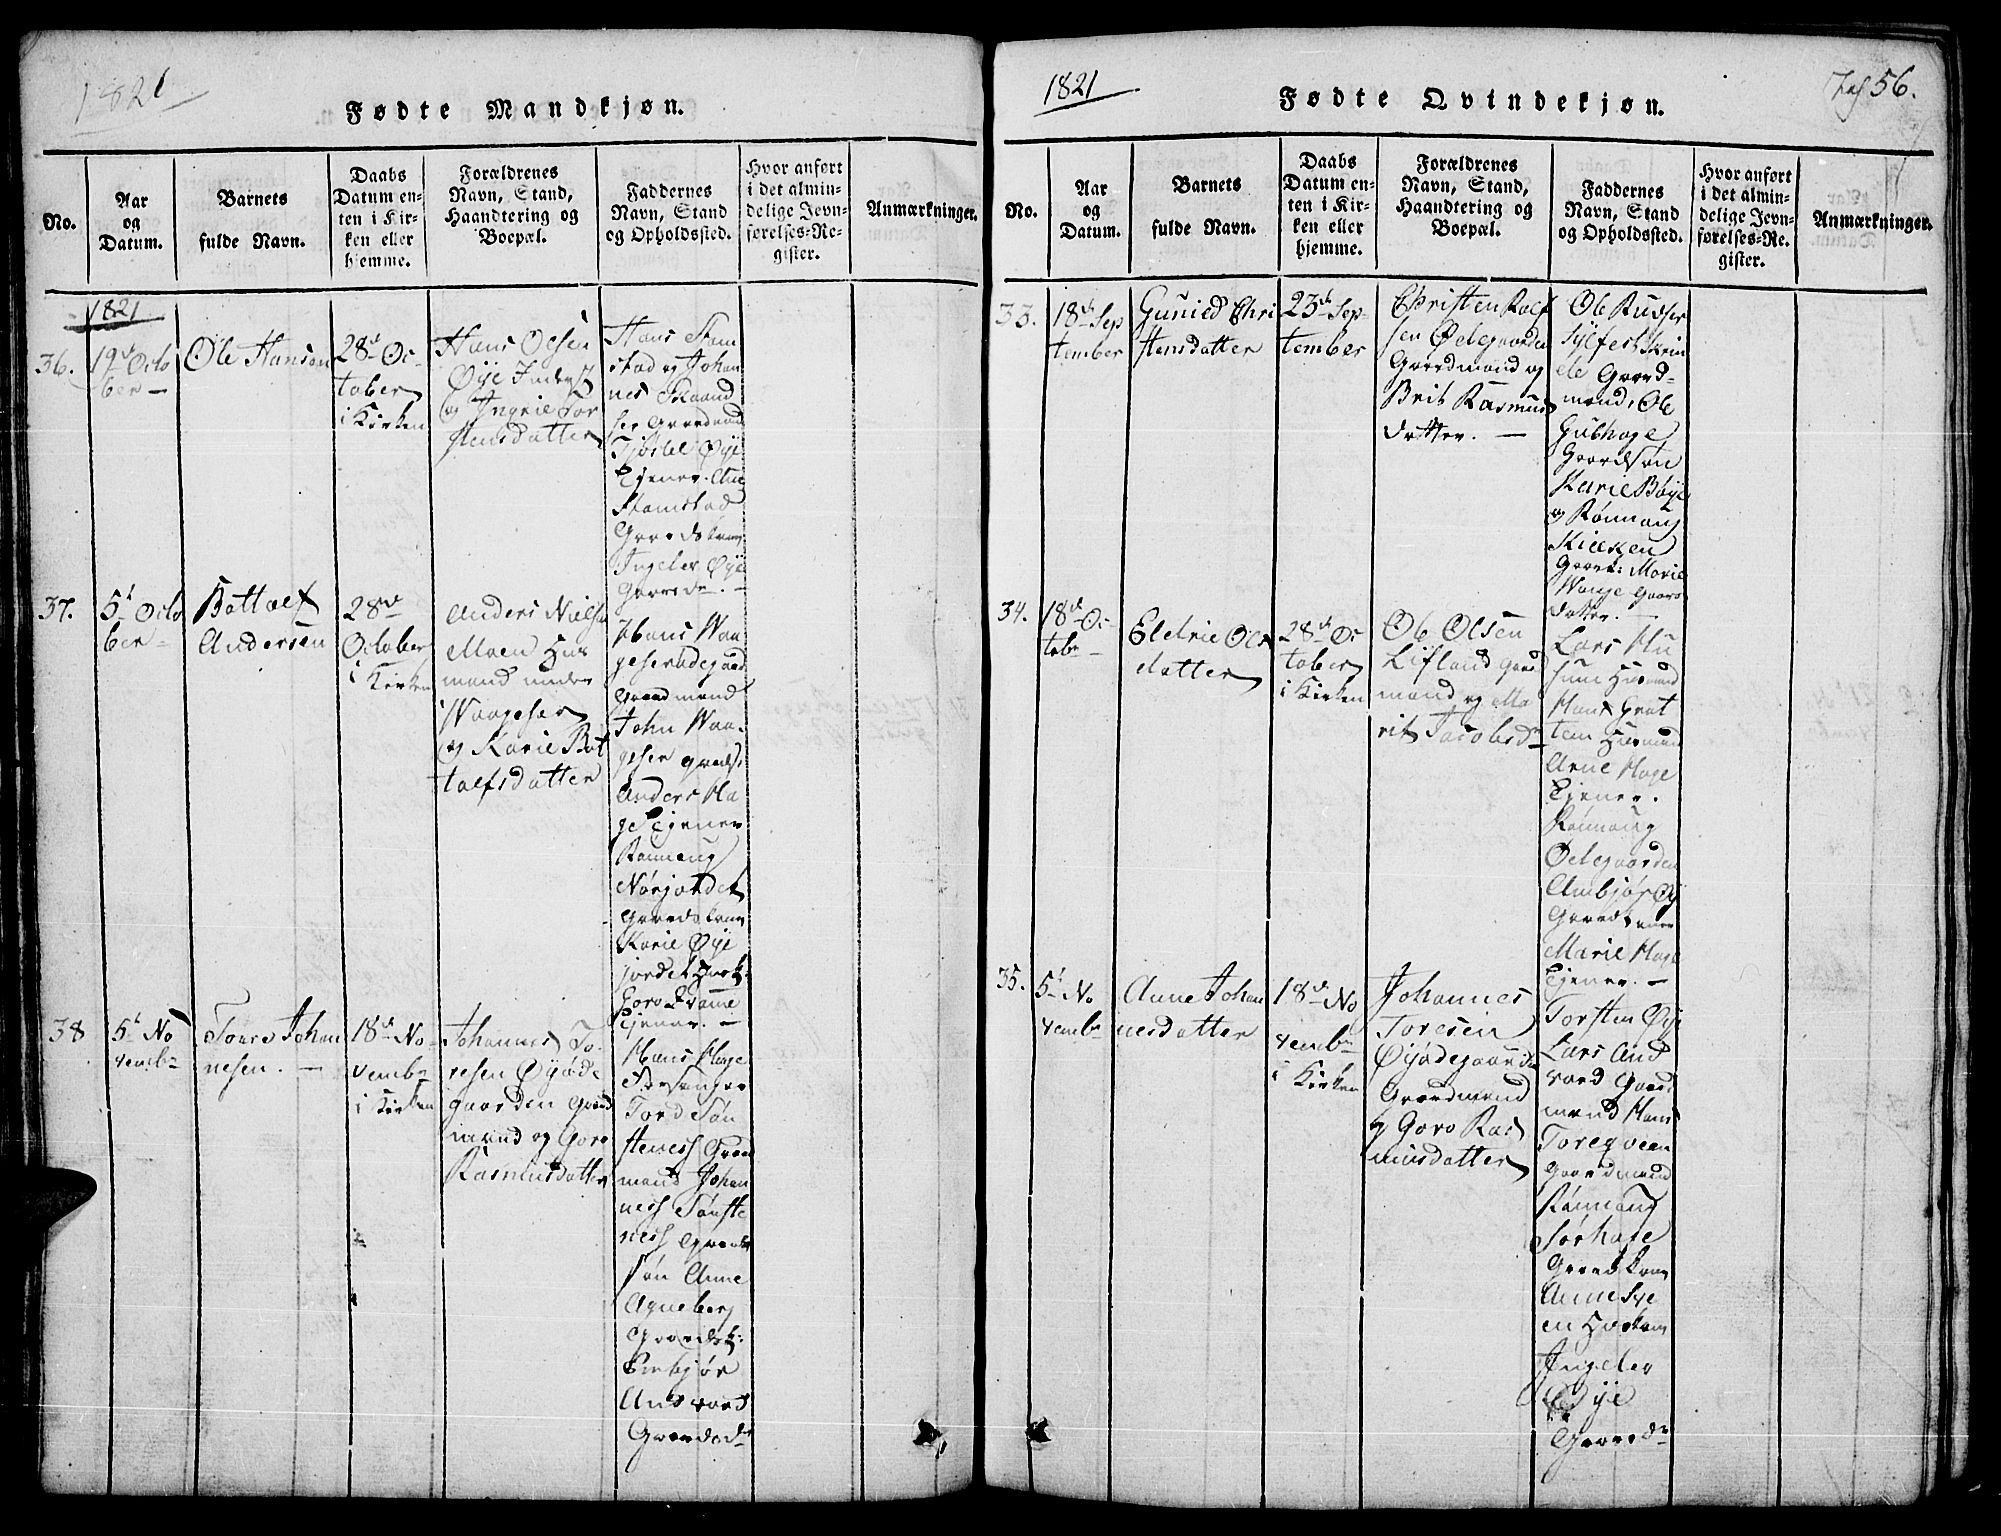 1821
Fødte Mandkjøn.
No.
Aar
og
Datum.
Barnets
fulde Navn.
Daabs
Datum en-
ten i Kir-
ken eller
hjemme.
Forældrenes
Navn, Stand,
Haandtering og
Boepæl.
Faddernes
Navn, Stand
og Opholdssted.
Hvor anført
i det almin-
delige Jevn-
førelses-Re-
gister.
Anmærkninger.
1821
36.
19de Octo
ber
Ole Hansen
28de Oc
tober
i Kirken
Hans Olsen
Øye Inderst
og Ingrie Tor
stensdatter
Hans Stam
stad og Johan
nes
Gaardmand
Øye
Tjener. Ane
Stamstad
Gaardskone
Ingeler Øye
Gaardsdr.
37.
5t Octo
ber
Bottolf
Andersen
28de
October
i Kirken
Anders Niels
Moen Hus
mand under
Waageser
og Karie Bot
tolfsdatter
Hans Waa
geserødegaard
Gaardmand
John Waa-
geser
Anders Ha
ge Tjener
Rønnoug
Nørjordet
Gaardskone
Karie Øye
jordet Husk:
Goro
Tjener.
38
5t No
vembr
Tore Johan
nesen.
18de No
vembr
i Kirken
Johannes To
resen Øyøde
gaarden Gaard
mand og Goro
Rasmusdatter
Hans Hage
Forsanger
Tord Tøn
steness Gaard
mand Johan
ness Tønste
ness Gaards
søn Anne
Agneberg
Gaardsk:
Embjør
Andvord
Gaardsdr
1821
Fødte Qvindekjøn.
56.
No.
Aar
og
Datum.
Barnets
fulde Navn.
Daabs
Datum en-
ten i Kir-
ken eller
hjemme.
Forældrenes
Navn, Stand,
Haandtering og
Boepæl.
Faddernes
Navn, Stand
og Opholdssted.
Hvor anført
i det almin-
delige Jevn-
førelses-Re-
gister.
Anmærkninger.
33.
18de Sep
tember
Gunild Chri
stensdatter
23de Sep-
tember
Christen Rolf
sen Ødegaarden
Gaardmand og
Brit Rasmus
datter.
Ole
Sylfest Skrin
de Gaard-
mand, Ole
Gubhage
Gaardsøn
Marie Bøye
og Rønnoug
Gaardk: Marie
Gaards
datter.
34.
18de Oc
tobr
Eldrie Ols
datter
28de Oc
tober
i Kirken
Ole Olsen
Lifland Gaard
mand og Ma
rit Jacobsdr
Lars Hu
sum Husmand
Hans Grot
tem Husmand
Arne Hage
Tjener.
Rønnoug
Ødegaarden
Ambjør Øy
Gaardkone
Marie Hage
Tjener.
35.
5t No
vembr
Anne Johan
nesdatter
18de No
vembr
i Kirken
Johannes
Toresen
Øyødegaarden
Gaardmand
og Goro Ras
musdatter
Torsten Øye
Lars And
vord Gaard
mand Hans
Toreqveen
Gaardmand
Rønnoug
Sørhage
Gaardkone
Anne Lye
en Huskone
Ingeler
Øye
Gaardsdr